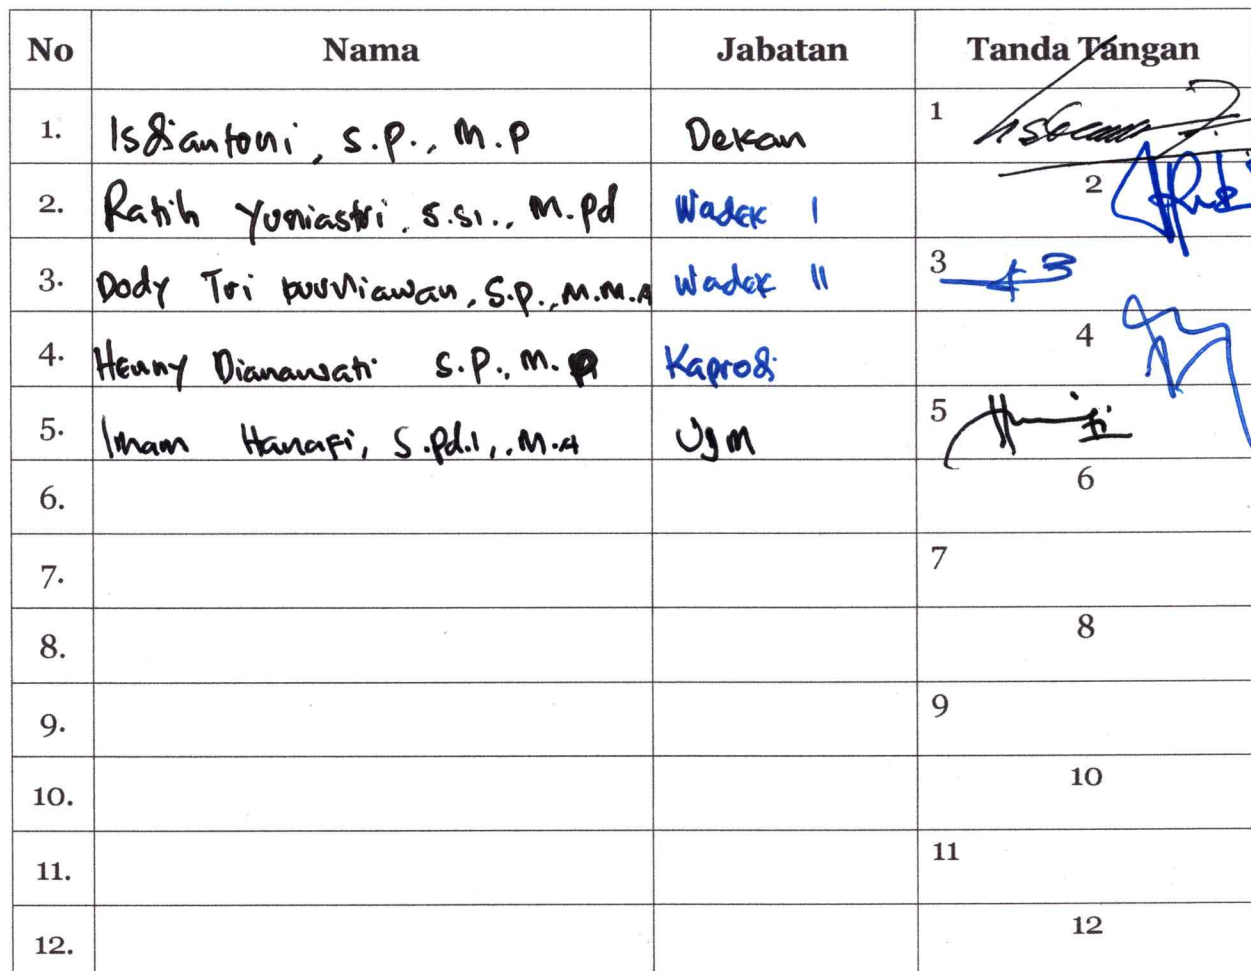 No Nama Jabatan Tanda Tangan
1. Isdiantoni, S.P., M.P Dekan 1
2. Ratih Yuniastri, S.Si., M.Pd Wadek I 2
3. Dody Tri Kurniawan, S.P., M.M.A Wadek II 3
4. Henny Dianawati S.P., M.P Kaprodi 4
5. Imam Hanafi, S.Pd.I,. M.A UJM 5
6. 6
7. 7
8. 8
9. 9
10. 10
11. 11
12. 12